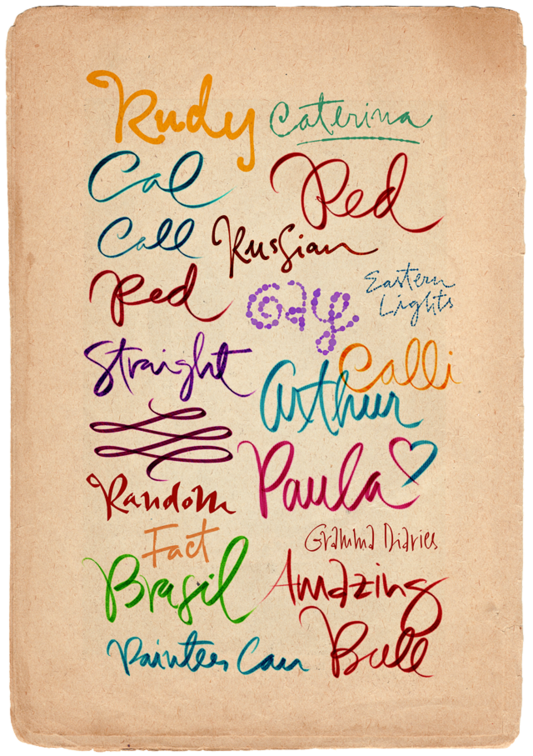 Rudy
Caterina
Cal
Red
Call
Russian
Red
Gay
Eastern
Lights
Straight
Calli
Arthur
Paula
Random
Fact
Gramma Diaries
Brasil
Amazing
Can